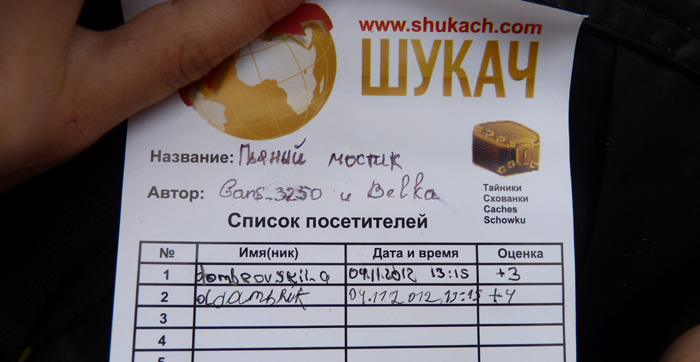 www.shukach.com
ШУКАЧ
Название: Пьяный мостик
Автор: Gans_3250 и Belka
Тайники
Схованки
Caches
Schowku
Список посетителей
№ Имя(ник) Дата и время Оценка
1 dombrovskil_a 04.11.2012 13:15 +3
2 04.11.2012 13:15 +4
3
4